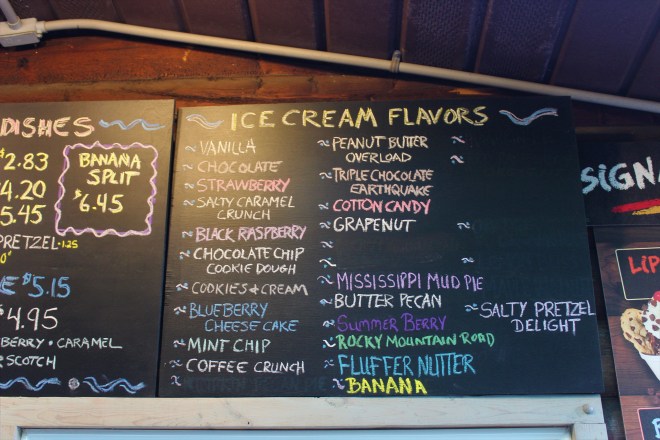 DISHES
$2.83
4.20
5.45
BANANA
SPLIT
$6.45
PRETZEL • 1.25
$5.15
$4.95
BERRY • CARAMEL
SCOTCH
ICE CREAM FLAVORS
~ VANILLA
~ CHOCOLATE
~ STRAWBERRY
~ SALTY CARAMEL
CRUNCH
~ BLACK RASPBERRY
~ CHOCOLATE CHIP
COOKIE DOUGH
~ COOKIES & CREAM
~ BLUEBERRY
CHEESE CAKE
~ MINT CHIP
~ COFFEE CRUNCH
~ PEANUT BUTTER
OVERLOAD
~ TRIPLE CHOCOLATE
EARTHQUAKE
~ COTTON CANDY
~ GRAPENUT
~ MISSISSIPPI MUD PIE
~ BUTTER PECAN
~ SUMMER BERRY
~ ROCKY MOUNTAIN ROAD
~ FLUFFER NUTTER
~ BANANA
~ SALTY PRETZEL
DELIGHT
SIGNA
LIP